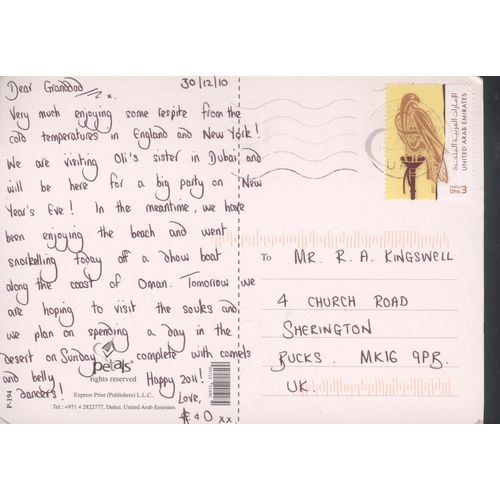 Dear Granddad
x.
30/12/10
Very much enjoying some respite from the
cold temperatures in England and New York!
We are visiting Oli's sister in Dubai and
will be here for a big party on New
Year's Eve! In the meantime, we have
been enjoying the beach and went
snorkelling today off a dhow boat
along the coast of Oman. Tomorrow we
are hoping to visit the souks and
we plan on spending a day in the
desert on Sunday complete with camels
and belly
dancers! Happy 2011!
Love,
& O xx.
petals
rights reserved
Express Print (Publishers) L.L.C.
Tel.: +971 4 2822777, Dubai, United Arab Emirates
P-194
الإمارات العربية المتحدة
UNITED ARAB EMIRATES
Dhs 3
U.A.
To MR. R. A. KINGSWELL
4 CHURCH ROAD
SHERINGTON
BUCKS. MK16 9PB.
UK.